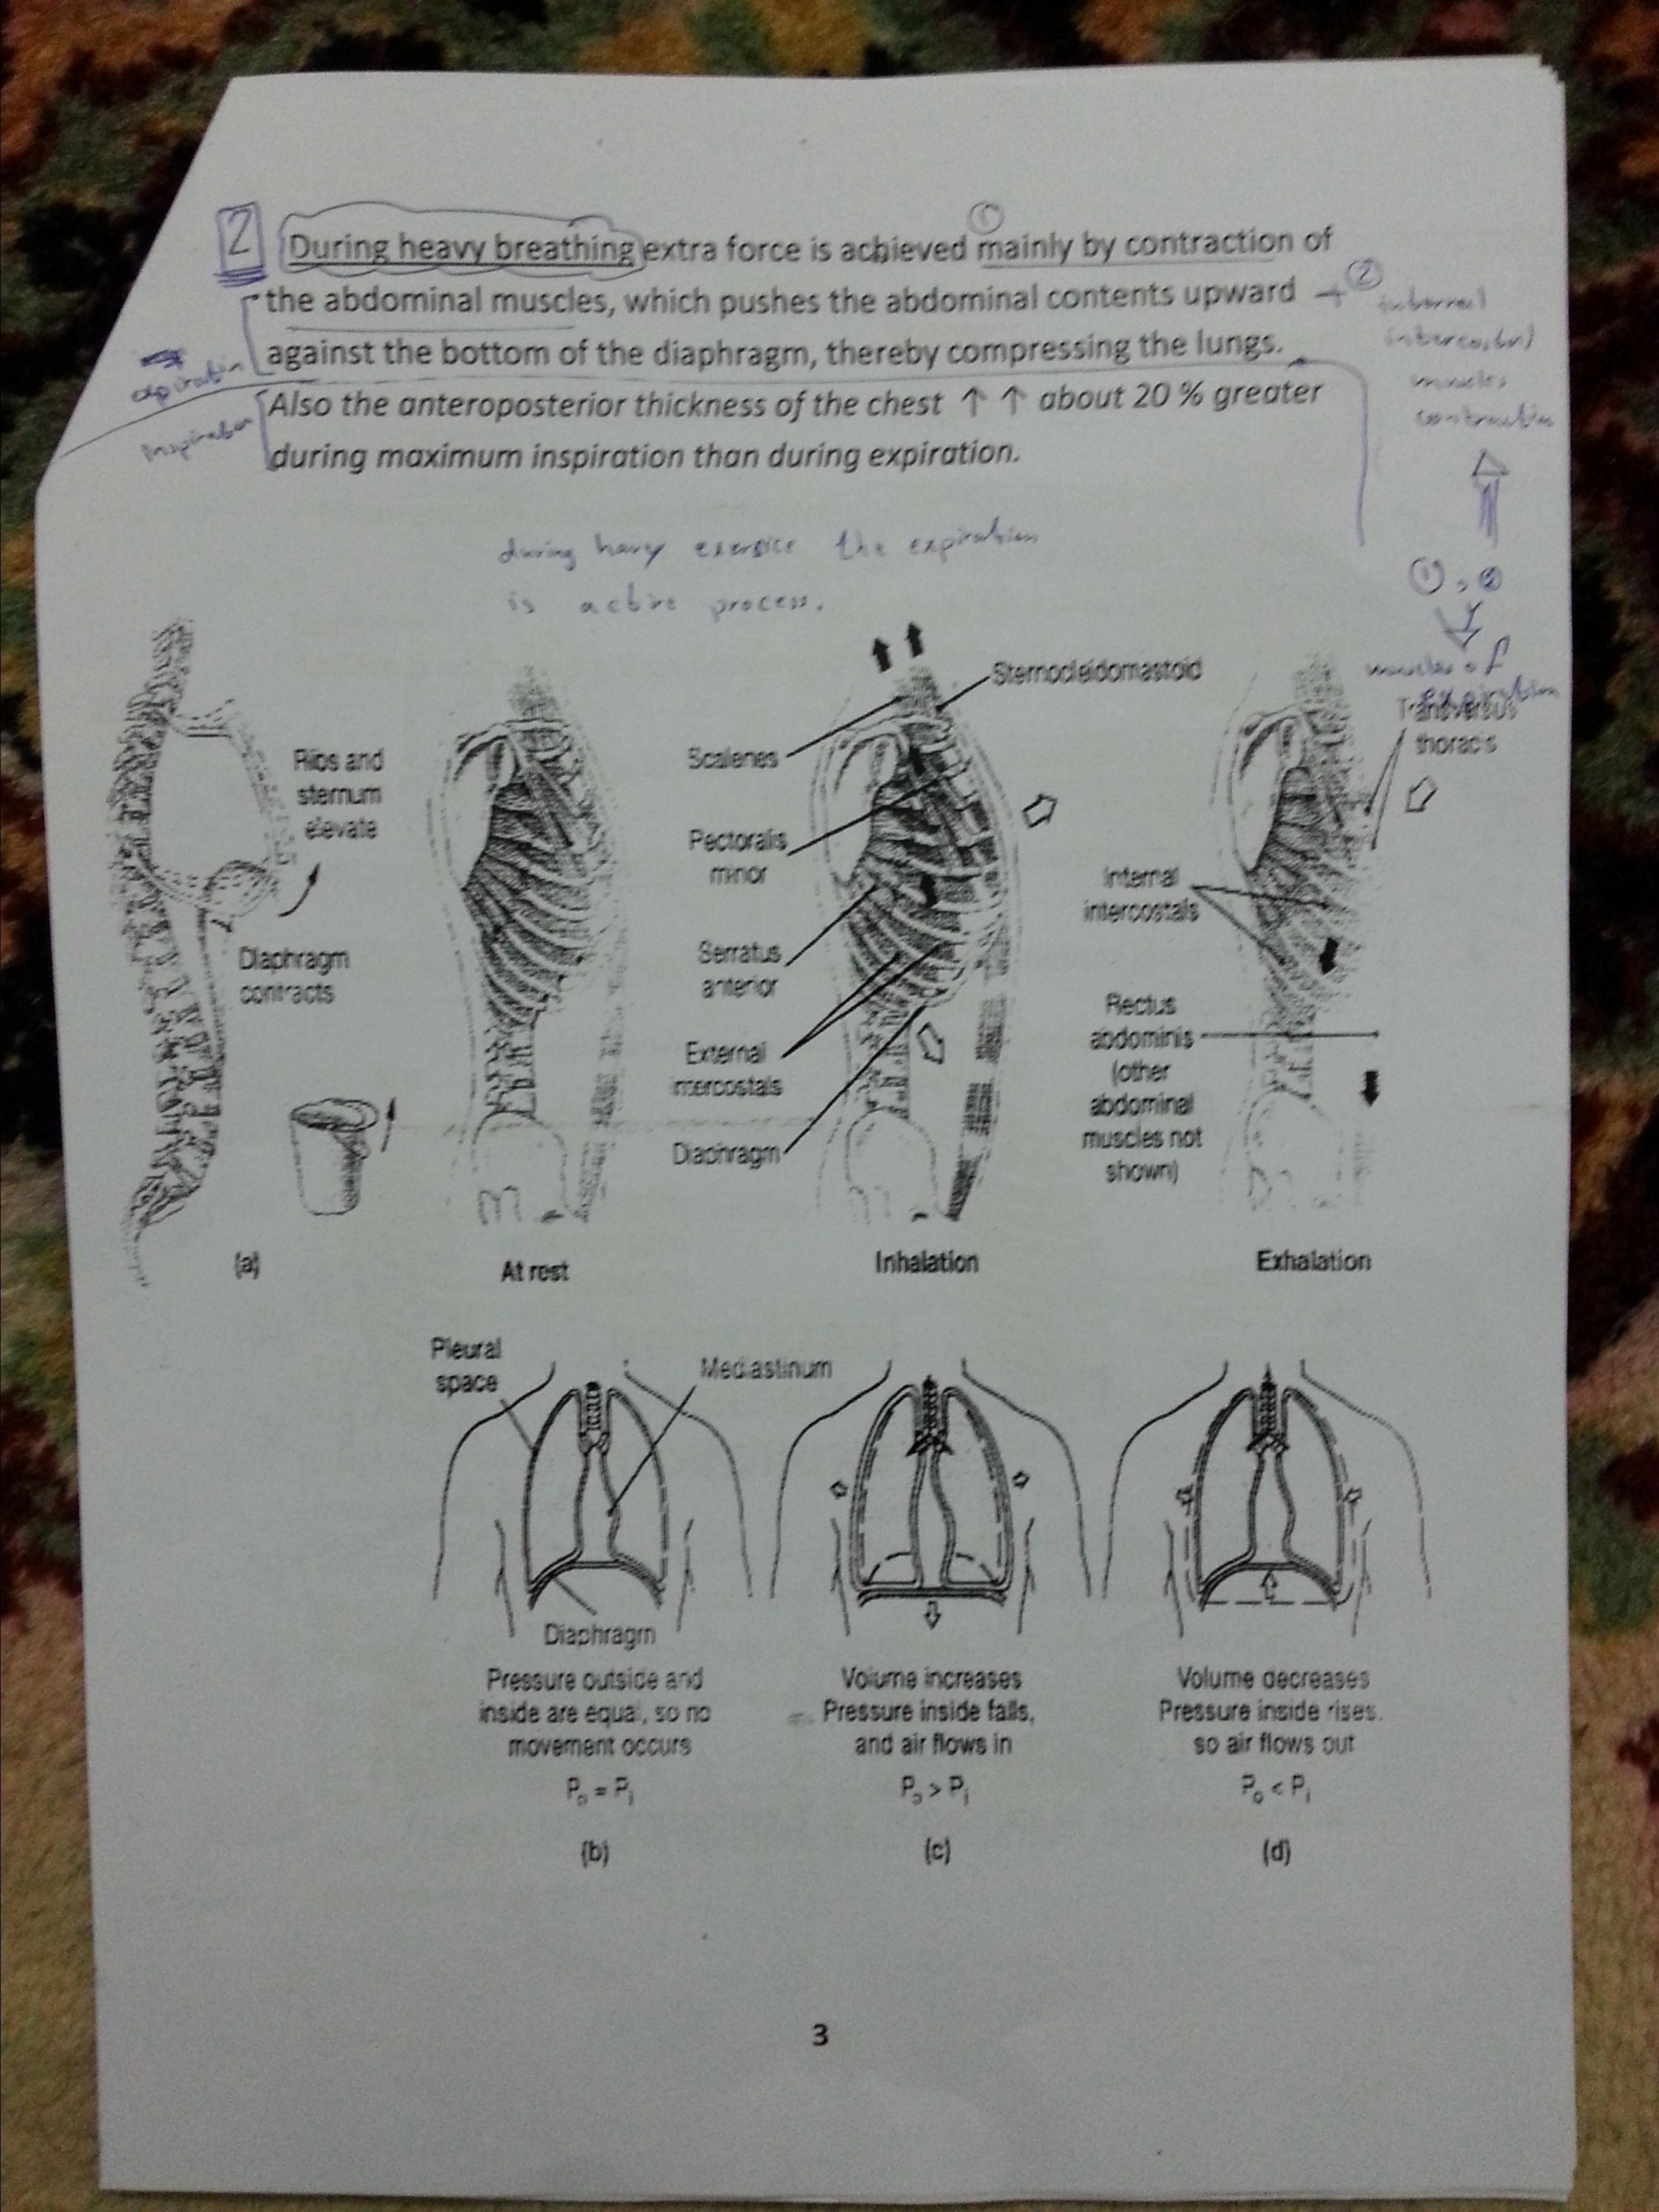 2
During heavy breathing extra force is achieved mainly by contraction of
①
the abdominal muscles, which pushes the abdominal contents upward + ②
against the bottom of the diaphragm, thereby compressing the lungs.
internal
intercostal
muscles
contraction
expiration
Also the anteroposterior thickness of the chest ↑ ↑ about 20 % greater
during maximum inspiration than during expiration.
Inspiration
during havy exersice the expiration
is active process.
①, ②
muscles of
expiration
Ribs and
sternum
elevate
Diaphragm
contracts
(a)
At rest
Sternocleidomastoid
Scalenes
Pectoralis
minor
Serratus
anterior
External
intercostals
Diaphragm
Inhalation
Transversus
thoracis
Internal
intercostals
Rectus
abdominis
(other
abdominal
muscles not
shown)
Exhalation
Pleural
space
Mediastinum
Diaphragm
Pressure outside and
inside are equal, so no
movement occurs
Po = Pi
(b)
Volume increases
Pressure inside falls,
and air flows in
Po > Pi
(c)
Volume decreases
Pressure inside rises,
so air flows out
Po < Pi
(d)
3